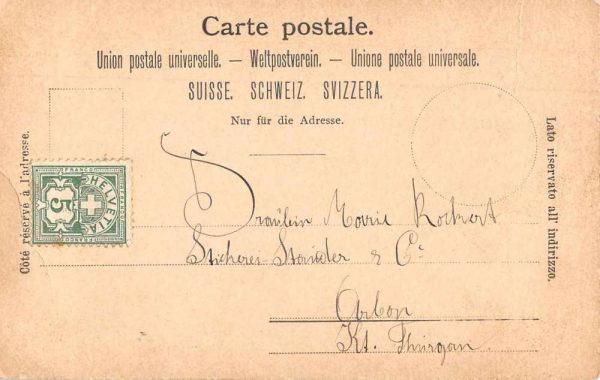 Carte postale.
Union postale universelle. — Weltpostverein. — Unione postale universale.
SUISSE. SCHWEIZ. SVIZZERA.
Nur für die Adresse.
Côté réservé à l'adresse.
Lato riservato all' indirizzo.
FRANCO
HELVETIA
5
FRANCO
Fräulein Marie
& Cie
Arbon
Kt. Thurgau